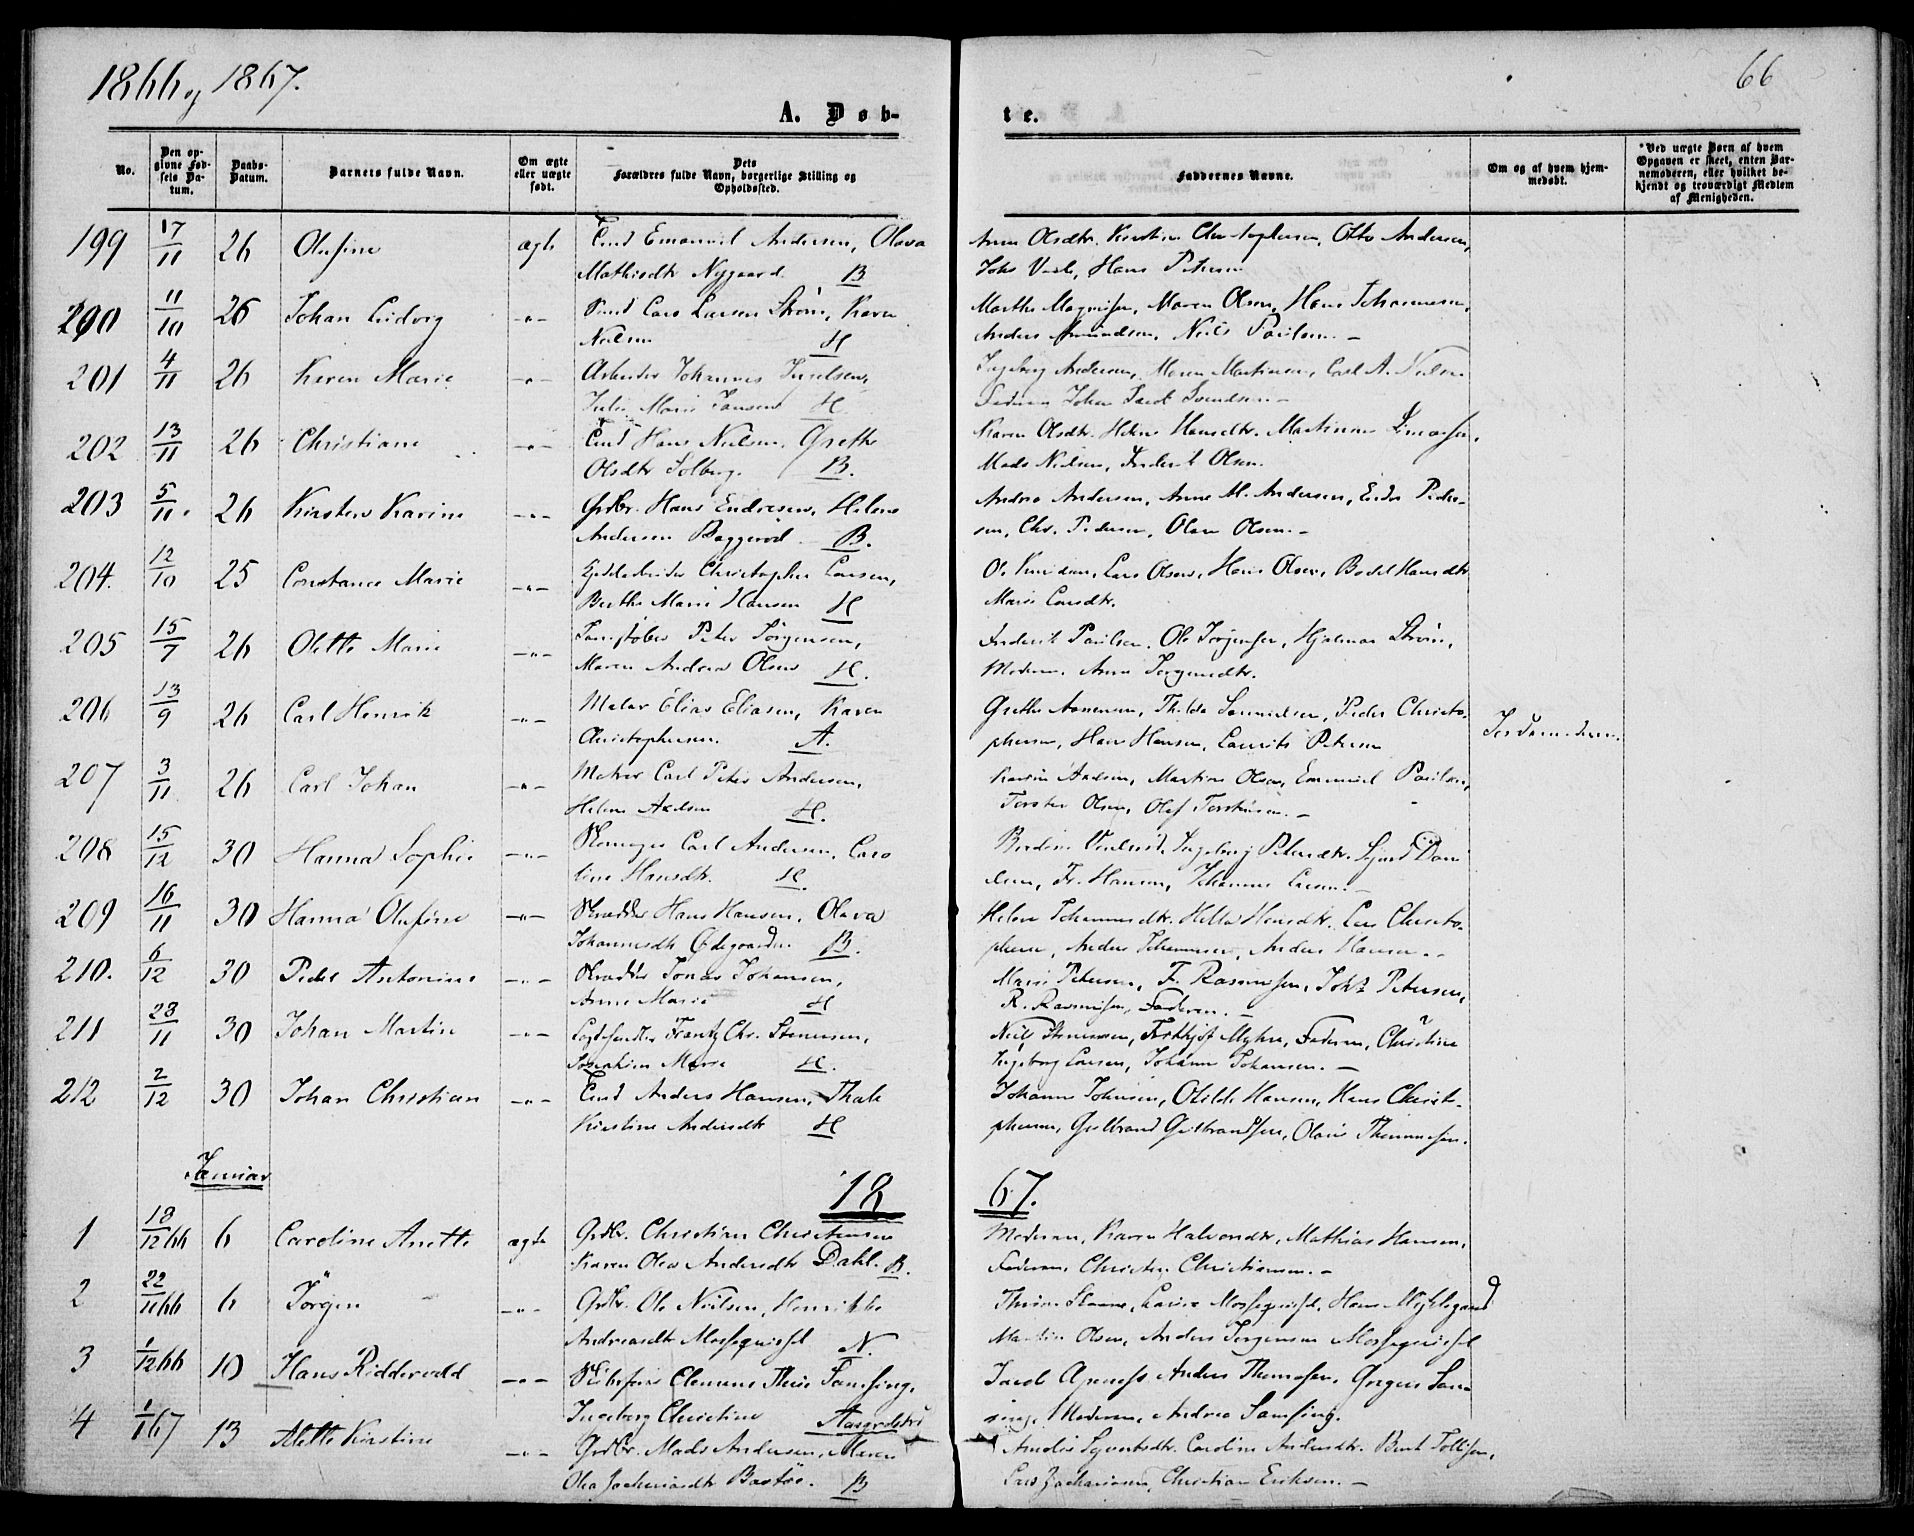 1866 og 1867.
66
A. Døb-
te.
No.
Den op-
givne Fød-
sels Da-
tum.
Daabs-
Datum.
Barnets fulde Navn.
Om ægte
eller uægte
født.
Dets
Forældres fulde Navn, borgerlige Stilling og
Opholdssted.
Faddernes Navne.
Om og af hvem hjem-
medøbt.
*Ved uægte Børn af hvem
Opgaven er skeet, enten Bar-
nemoderen, eller hvilket be-
kjendt og troværdigt Medlem
af Menigheden.
199 17/11 26 Olufine ægte Emanuel Andersen, Olava
Mathisdtr Nygaard B
Anne Olsdtr. Kirstine Christophersen, Otto Andersen,
Hans Petersen
200 11/10 26 Johan Ludvig -"- Lars Larsen Strøm, Karen
Nielsen H
Marthe Magnussen, Maren Olsen, Hans Johannesen,
Anders Amundsen, Niels Paulsen. -
201 4/11 26 Karen Marie -"- Arbeider Johannes
Julie Marie Jansen H.
Ingeborg Andersen, Maren Martinsen, Carl A. Nielsen
Faderen Johan Jacob Svendsen -
202 13/11 26 Christiane -"- Hans Nielsen, Grethe
Olsdtr Solberg. B.
Karen Olsdtr. Helene Hansdtr. Martinus
Mads Nielsen, Frederik Olsen.
203 5/11. 26 Kirsten Karine -"- Grdbr. Hans Endresen, Helene
Andersen Baggerød B.
Andrea Andersen, Anne M. Andersen, Endre Peder-
sen, Chr. Pedersen, Olava Olsen. -
204. 12/10 25 Constance Marie -"- Christopher Larsen,
Berthe Marie Hansen H
Ole Knudsen, Lars Olsen, Hans Olsen, Bodel Hansdtr
Marie Larsdtr.
205 15/7 26 Olette Marie -"- Peter Jörgensen,
Maren Andrea Olsen H.
Frederik Paulsen, Ole Jörgensen, Hjalmar Strøm,
Moderen, Anne Jørgensdtr.
206 13/9 26 Carl Henrik -"- Maler Elias Eliasen, Karen
Christophersen. A.
Grethe Aanensen, Thilda Samuelsen, Peder Christo-
phersen, Hans Hansen, Laurits Petersen
Jordemoderen.
207 3/11 26 Carl Johan -"- Matros Carl Peter Andersen,
Helene Axelsen H.
Karen Axelsen, Martine Olsen, Emanuel Paulsen,
Torster Olsen, Olaf Torstensen. -
208 15/12 30 Hanna Sophie -"- Carl Andersen, Caro
line Hansdtr. H.
Ingeborg Petersdtr.
Fr. Hansen, Johannes Larsen. -
209 16/11 30 Hanna Olufine -"- Skrædder Hans Hansen, Olava
Johannesdtr Ødegaarden B.
Helene Johannesdtr. Helle Hansdtr. Lars Christo-
phersen, Anders Johannesen, Anders Hansen. -
210. 6/12 30 Peder Antonius -"- Skrædder Jonas Johansen,
Anne Marie H
Marie Petersen, F. Rasmussen, Johs Petersen,
R. Rasmussen, Faderen. -
211 28/11 30 Johan Martin -"- Frantz Chr. Stenersen,
Josephine Marie H.
Niels Stenersen, Fridthjof Myhre, Faderen, Christine
Ingeborg Larsen, Johanne Johansen. -
212 2/12 30 Johan Christian -"- Anders Hansen, Thale
Kirstine Andersdtr H
Johanne Johnsen, Otilde Hansen, Hans Christo-
phersen, Gulbrand Gulbrandsen, Olaus Thommesen.
Januar
18
67.
1 18/12 66 6 Caroline Anette ægte Grdbr. Christian Christensen
Karen Olea Andersdtr Dahl. B.
Moderen, Karen Halvorsdtr, Mathias Hansen,
Faderen, Christen Christiansen. -
2 22/11 66 6 Jörgen -"- Grdbr. Ole Nielsen, Henrikke
Andreasdtr Mossequissel N.
Lovise Mossequissel, Hans Myhlegaard
Martin Olsen, Anders Jørgensen Mossequissel
3 1/12 66 10 Hans Riddervold -"- Skibsfører Clemens Samsing,
Ingeborg Christine Aasgrdstr.
Jacob Agerup Anders Thomassen, Jørgen Sam
sing, Moderen, Andrea Samsing.
4 1/1 67 13 Alette Kirstine -"- Grdbr. Mads Andersen, Maren
Olea Zachariasdtr Bastøe. B
Amalie Syvertsdtr. Caroline Andersdtr. Bent Tollefsen,
Lars Zachariasen, Christian Eriksen. -